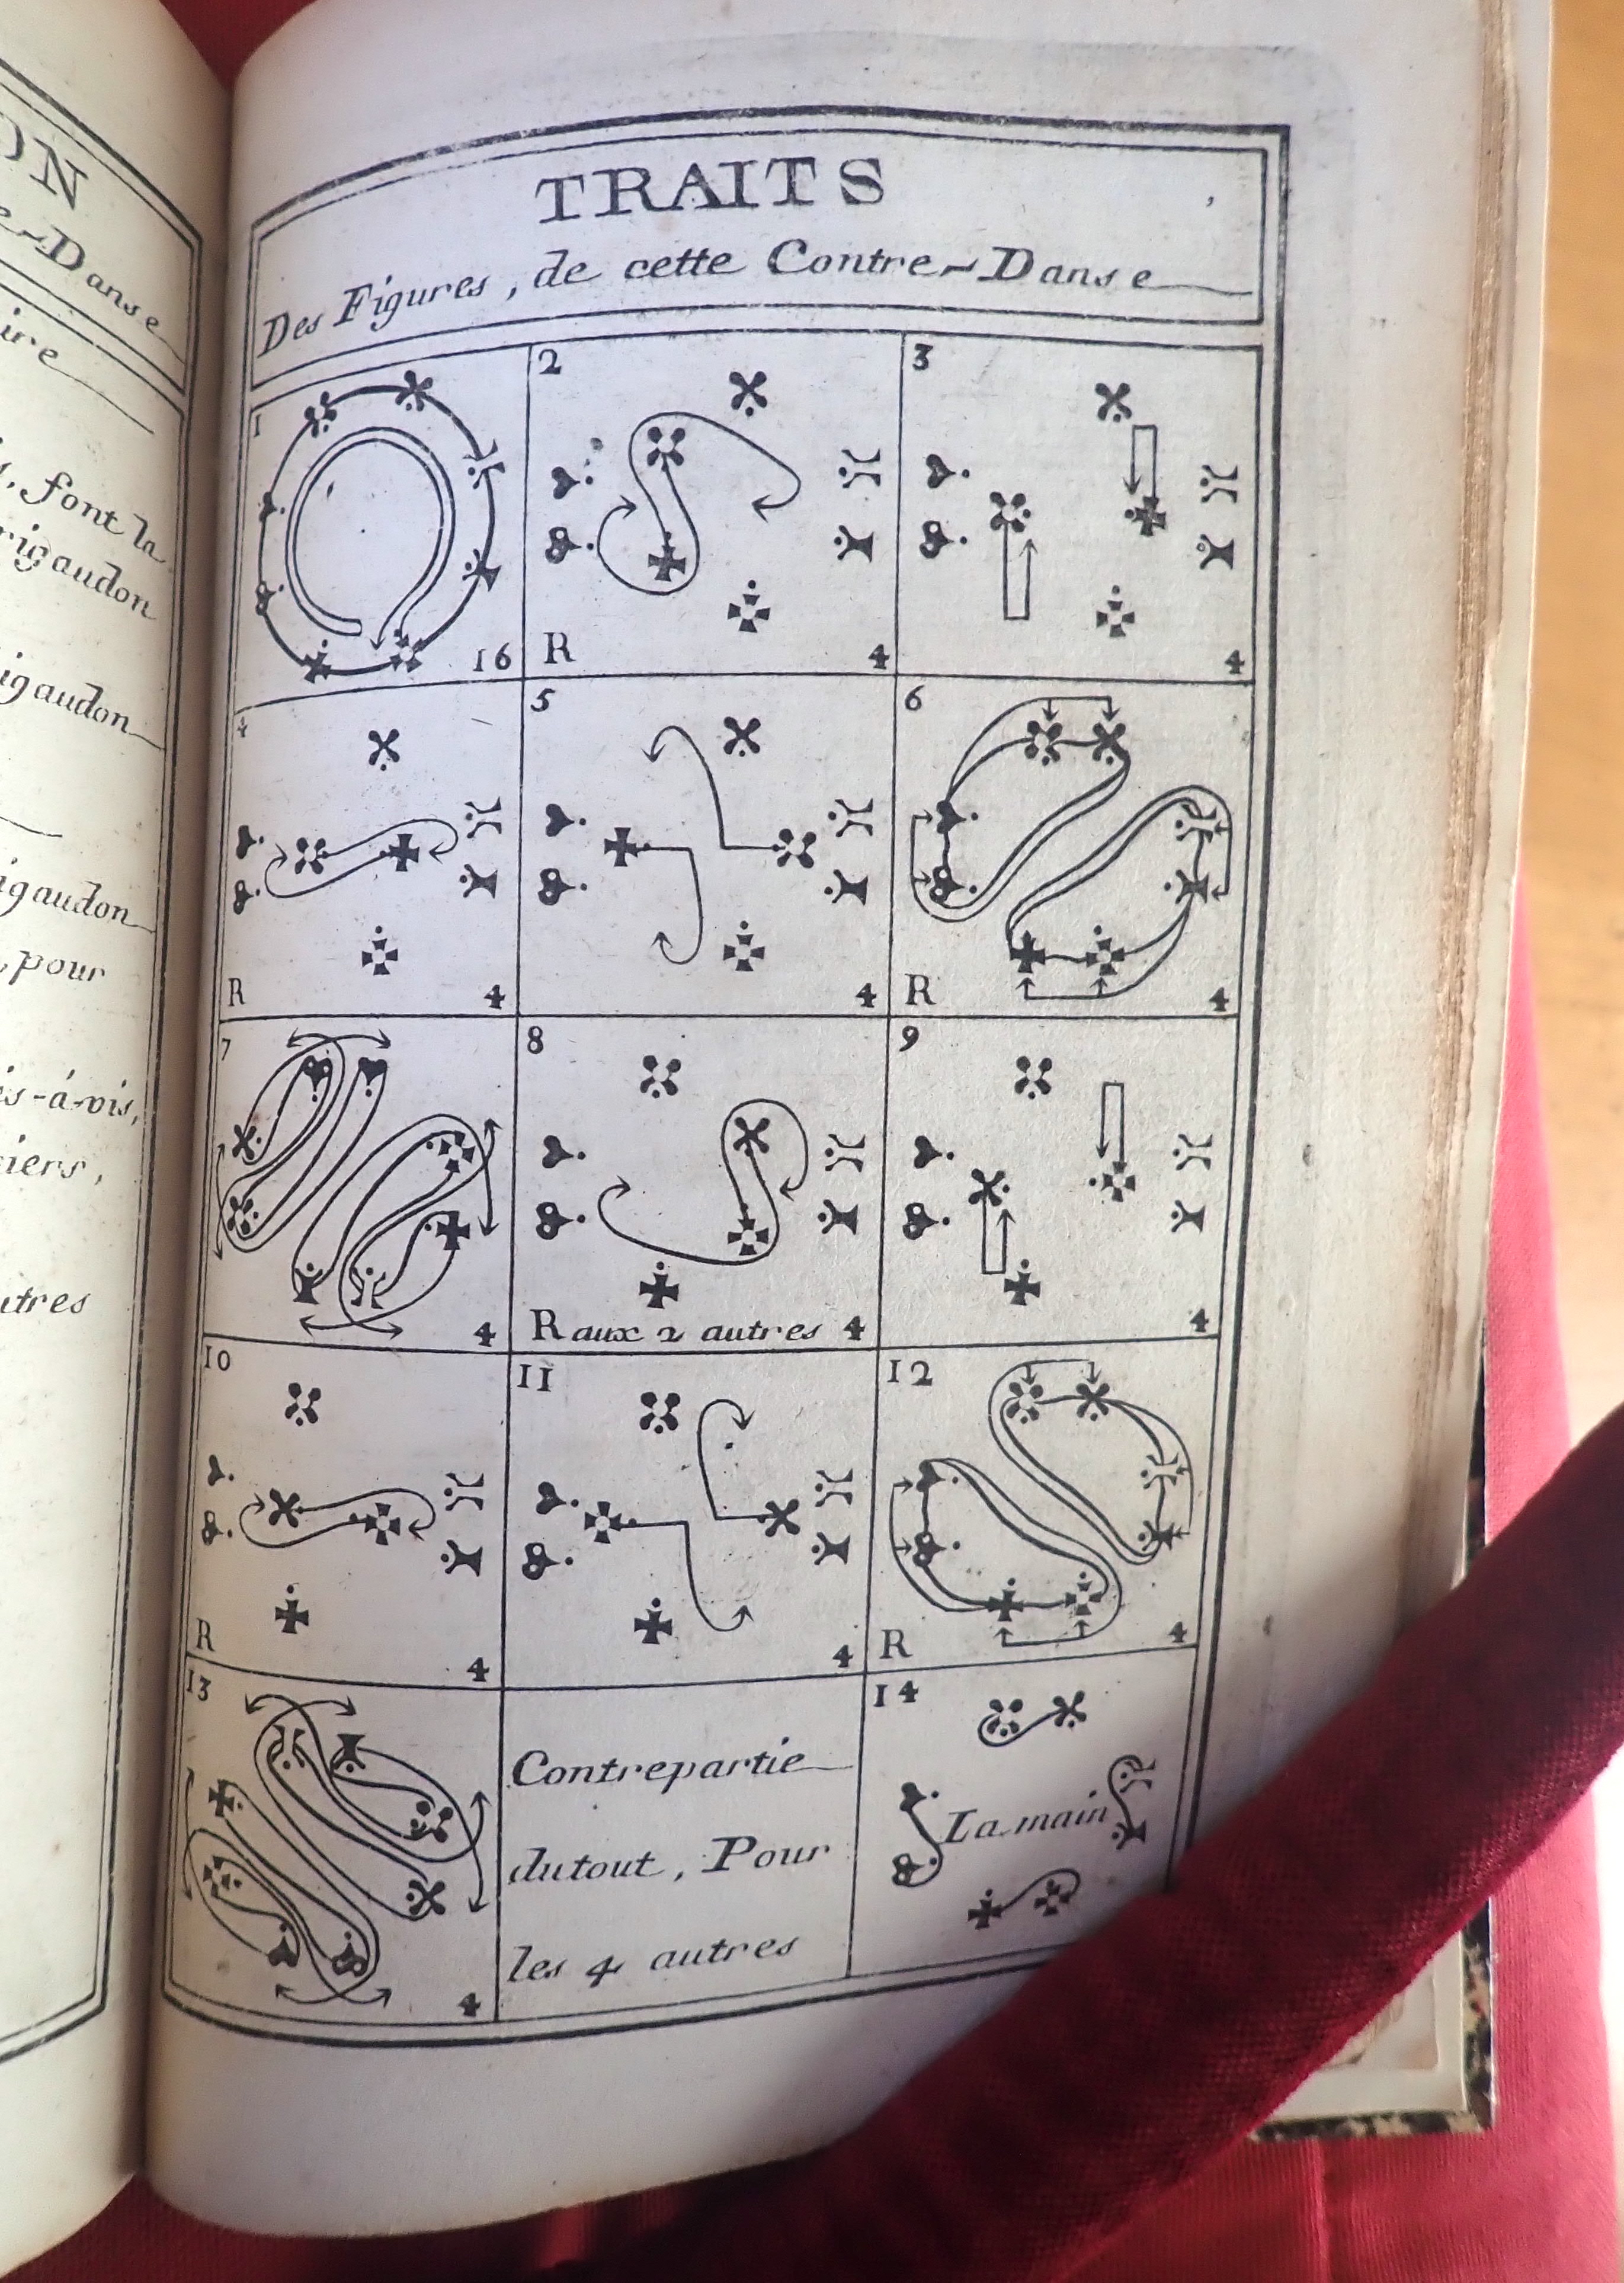 ON
Danse
ire
font la
rigaudon
igaudon
igaudon
pour
is-á-vis,
iers,
utres
TRAITS
Des Figures, de cette Contre-Danse
1
16
2
R
4
3
4
4
R
4
5
4
6
R
4
7
4
8
R aux 2 autres 4
9
4
10
R
4
11
4
12
R
4
13
4
Contrepartie
dutout, Pour
les 4 autres
14
La main